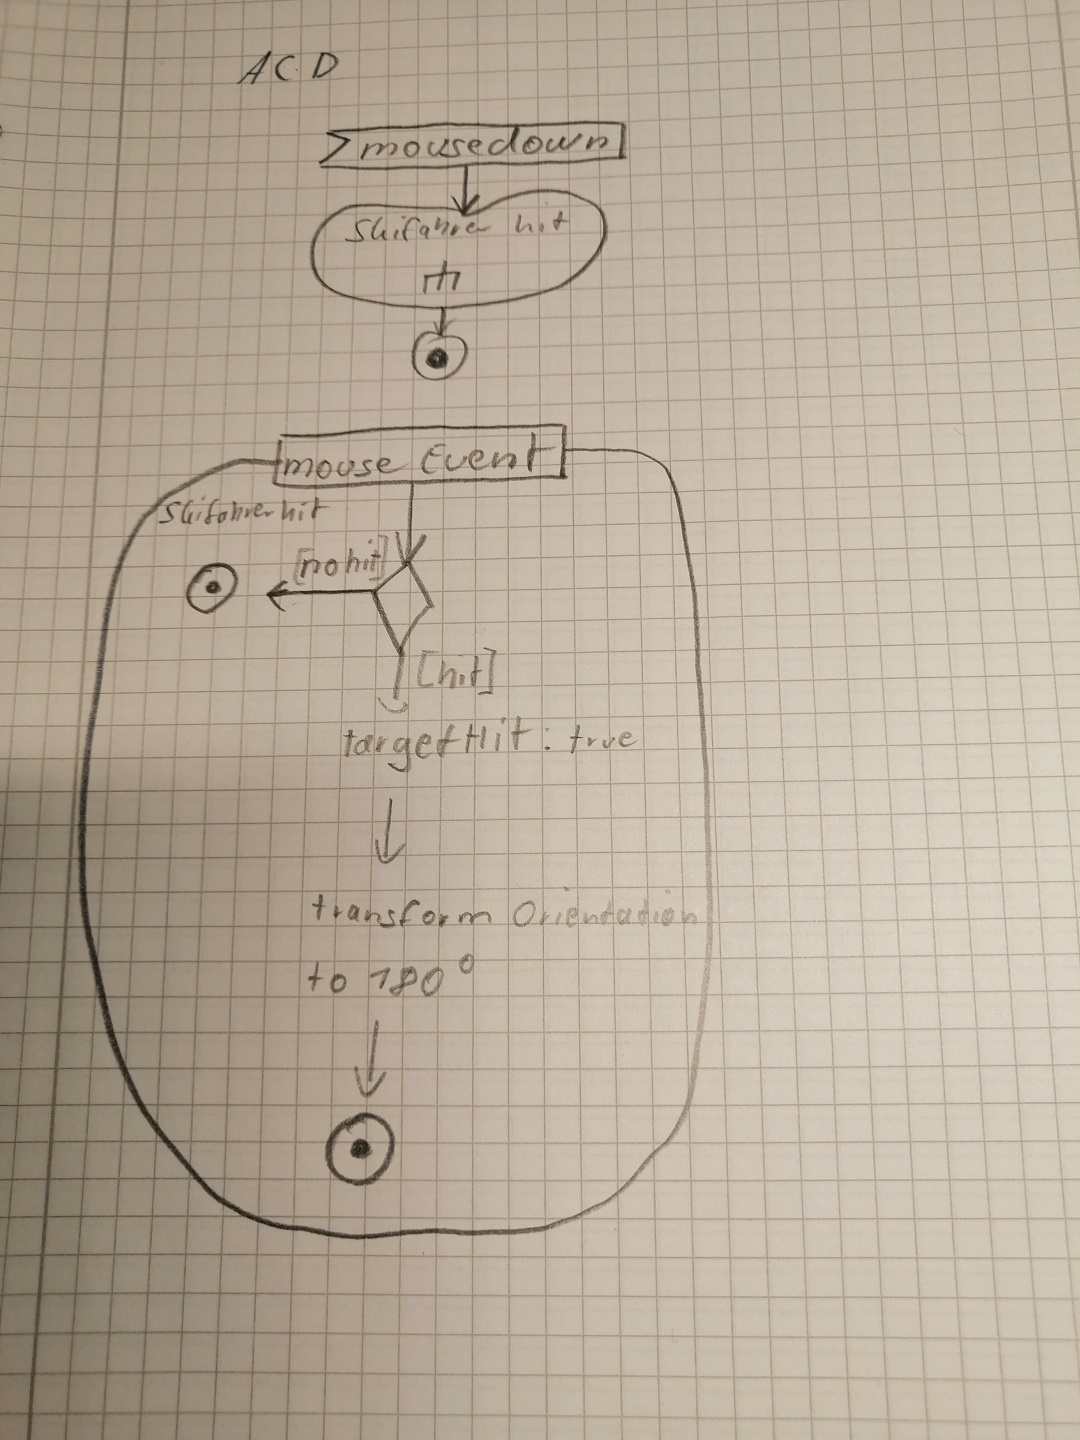 ACD
mousedown
Skifahrer hit
mouse Event
Skifahrer hit
[no hit]
[hit]
targetHit: true
transform Orientation
to 180°